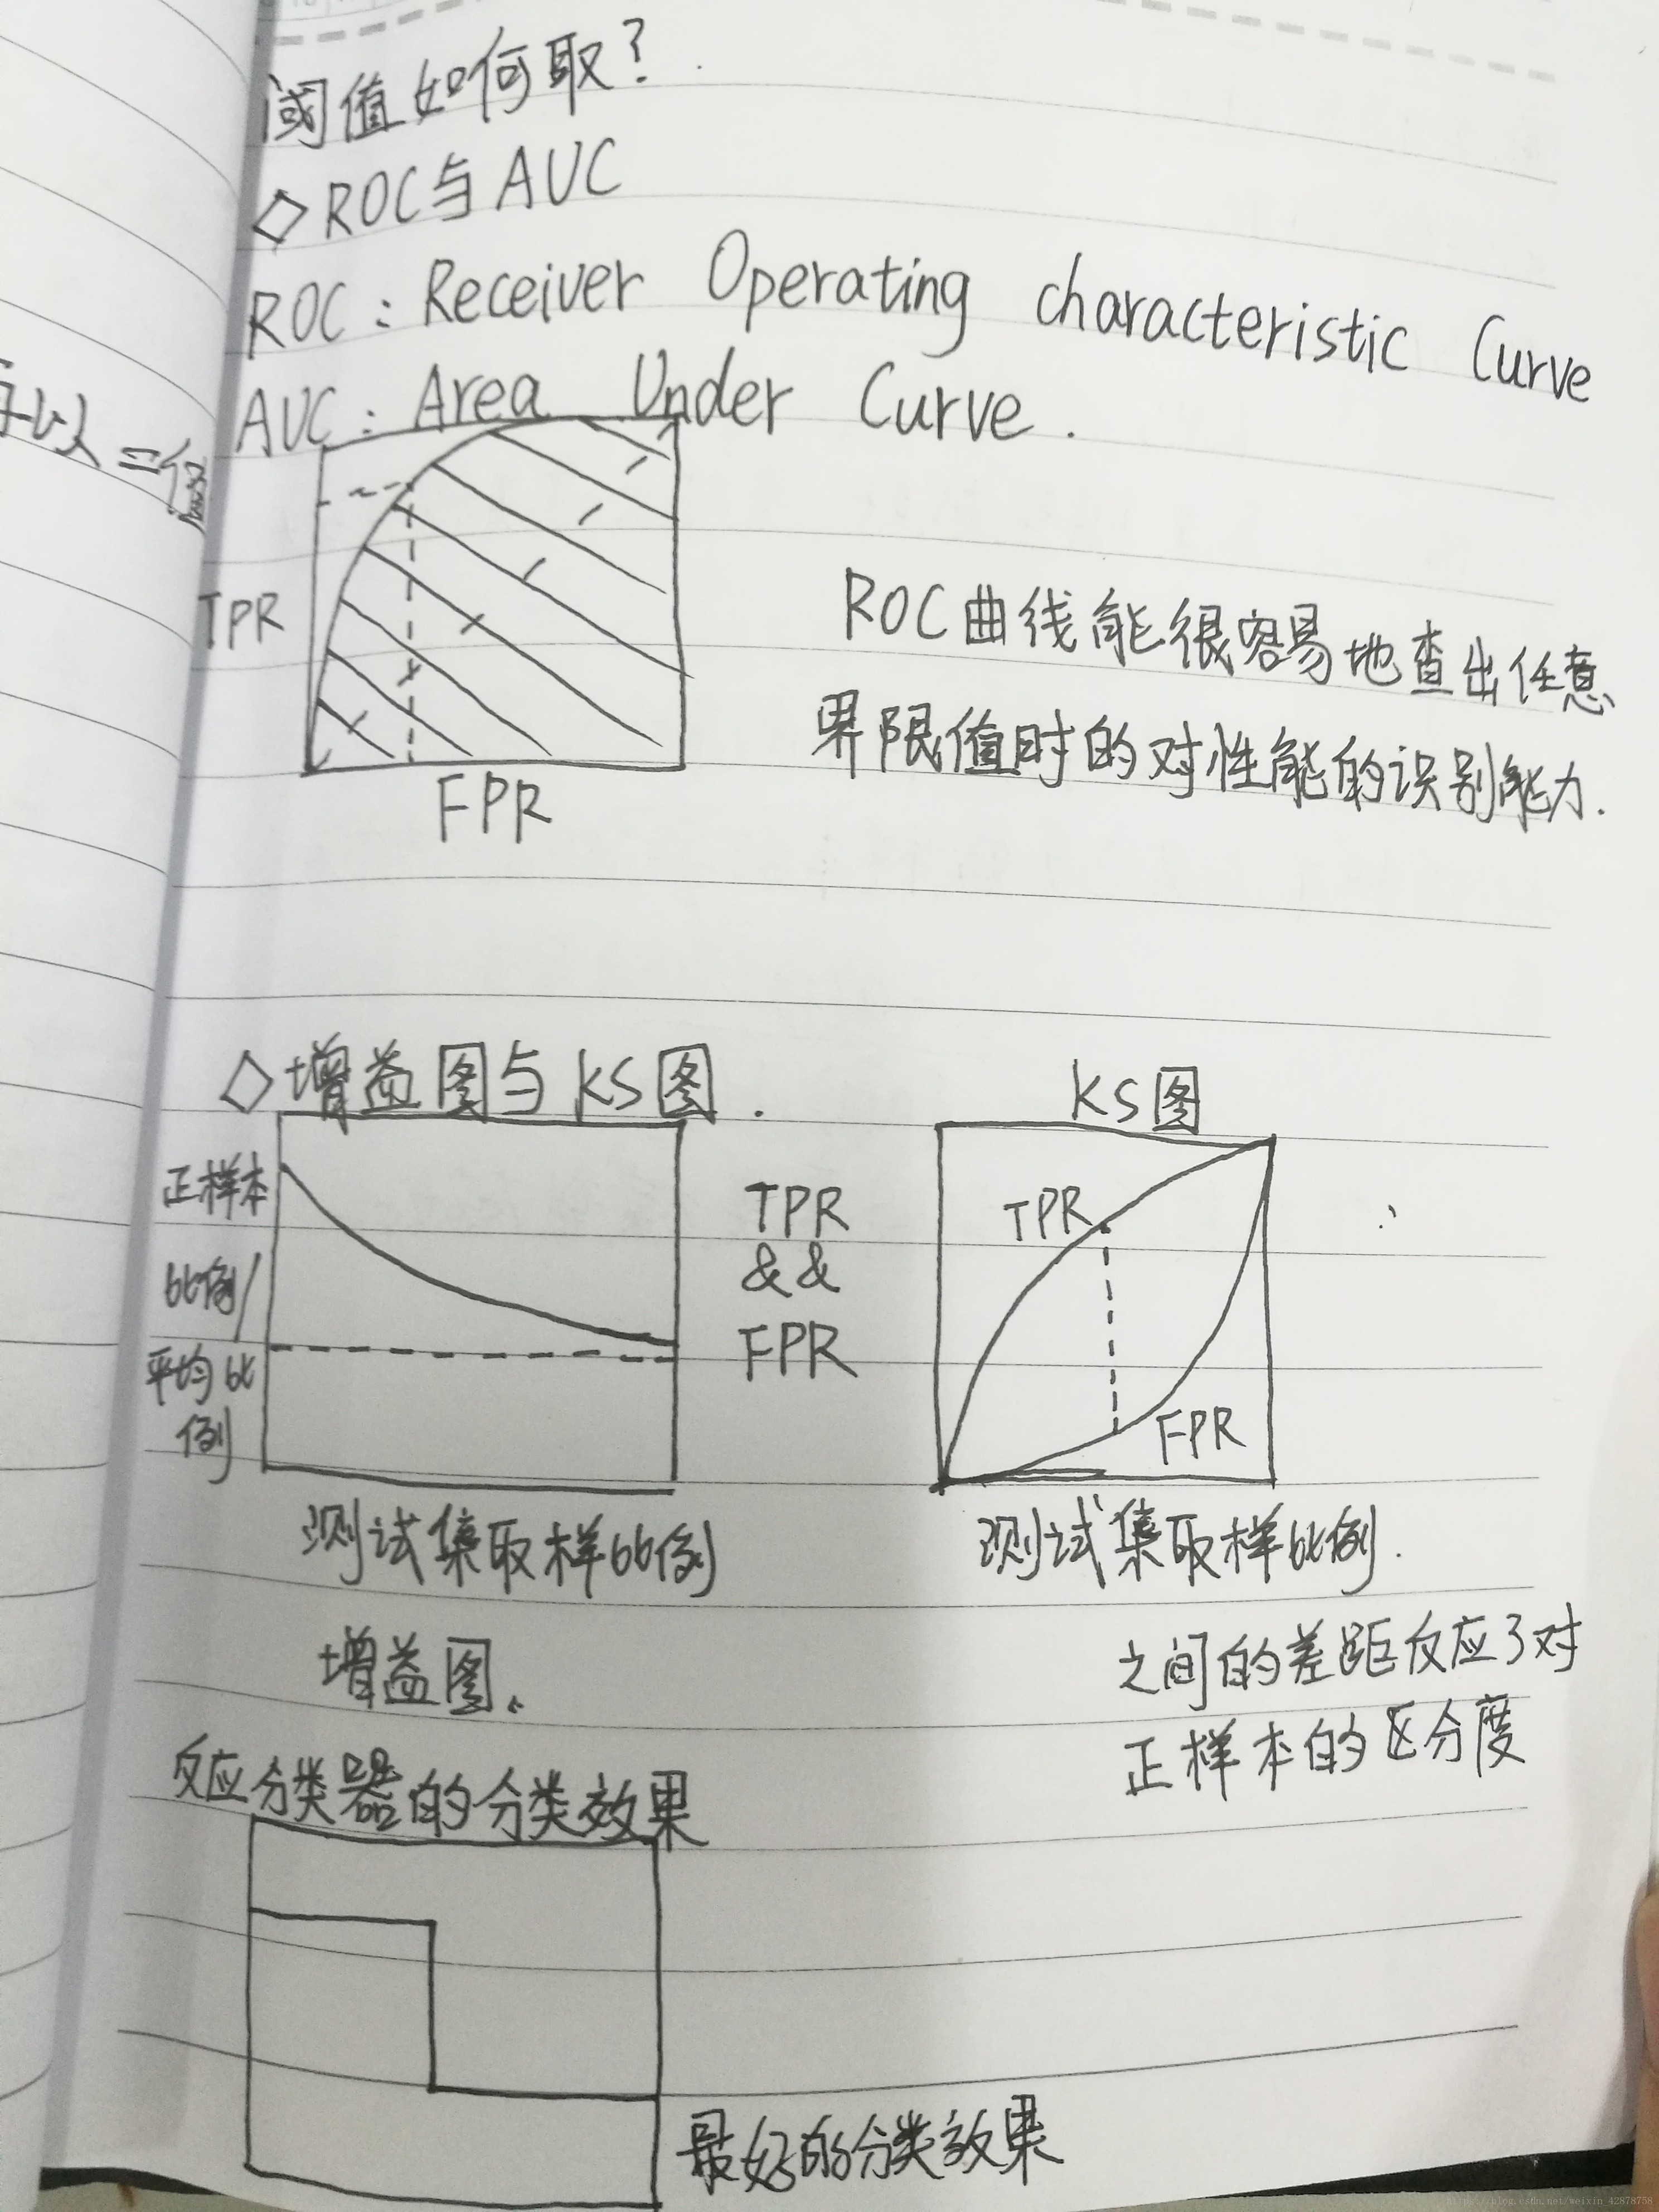 阈值如何取?
◇ ROC与AUC
ROC: Receiver Operating characteristic Curve
AUC: Area Under Curve.
TPR
FPR
ROC曲线能很容易地查出任意
界限值时的对性能的识别能力.
◇增益图与KS图.
正样本
比例/
平均比
例
测试集取样比例
增益图.
TPR
&&
FPR
KS图
TPR
FPR
测试集取样比例.
之间的差距反应了对
正样本的区分度
反应分类器的分类效果
最好的分类效果
https://blog.csdn.net/weixin_42878758